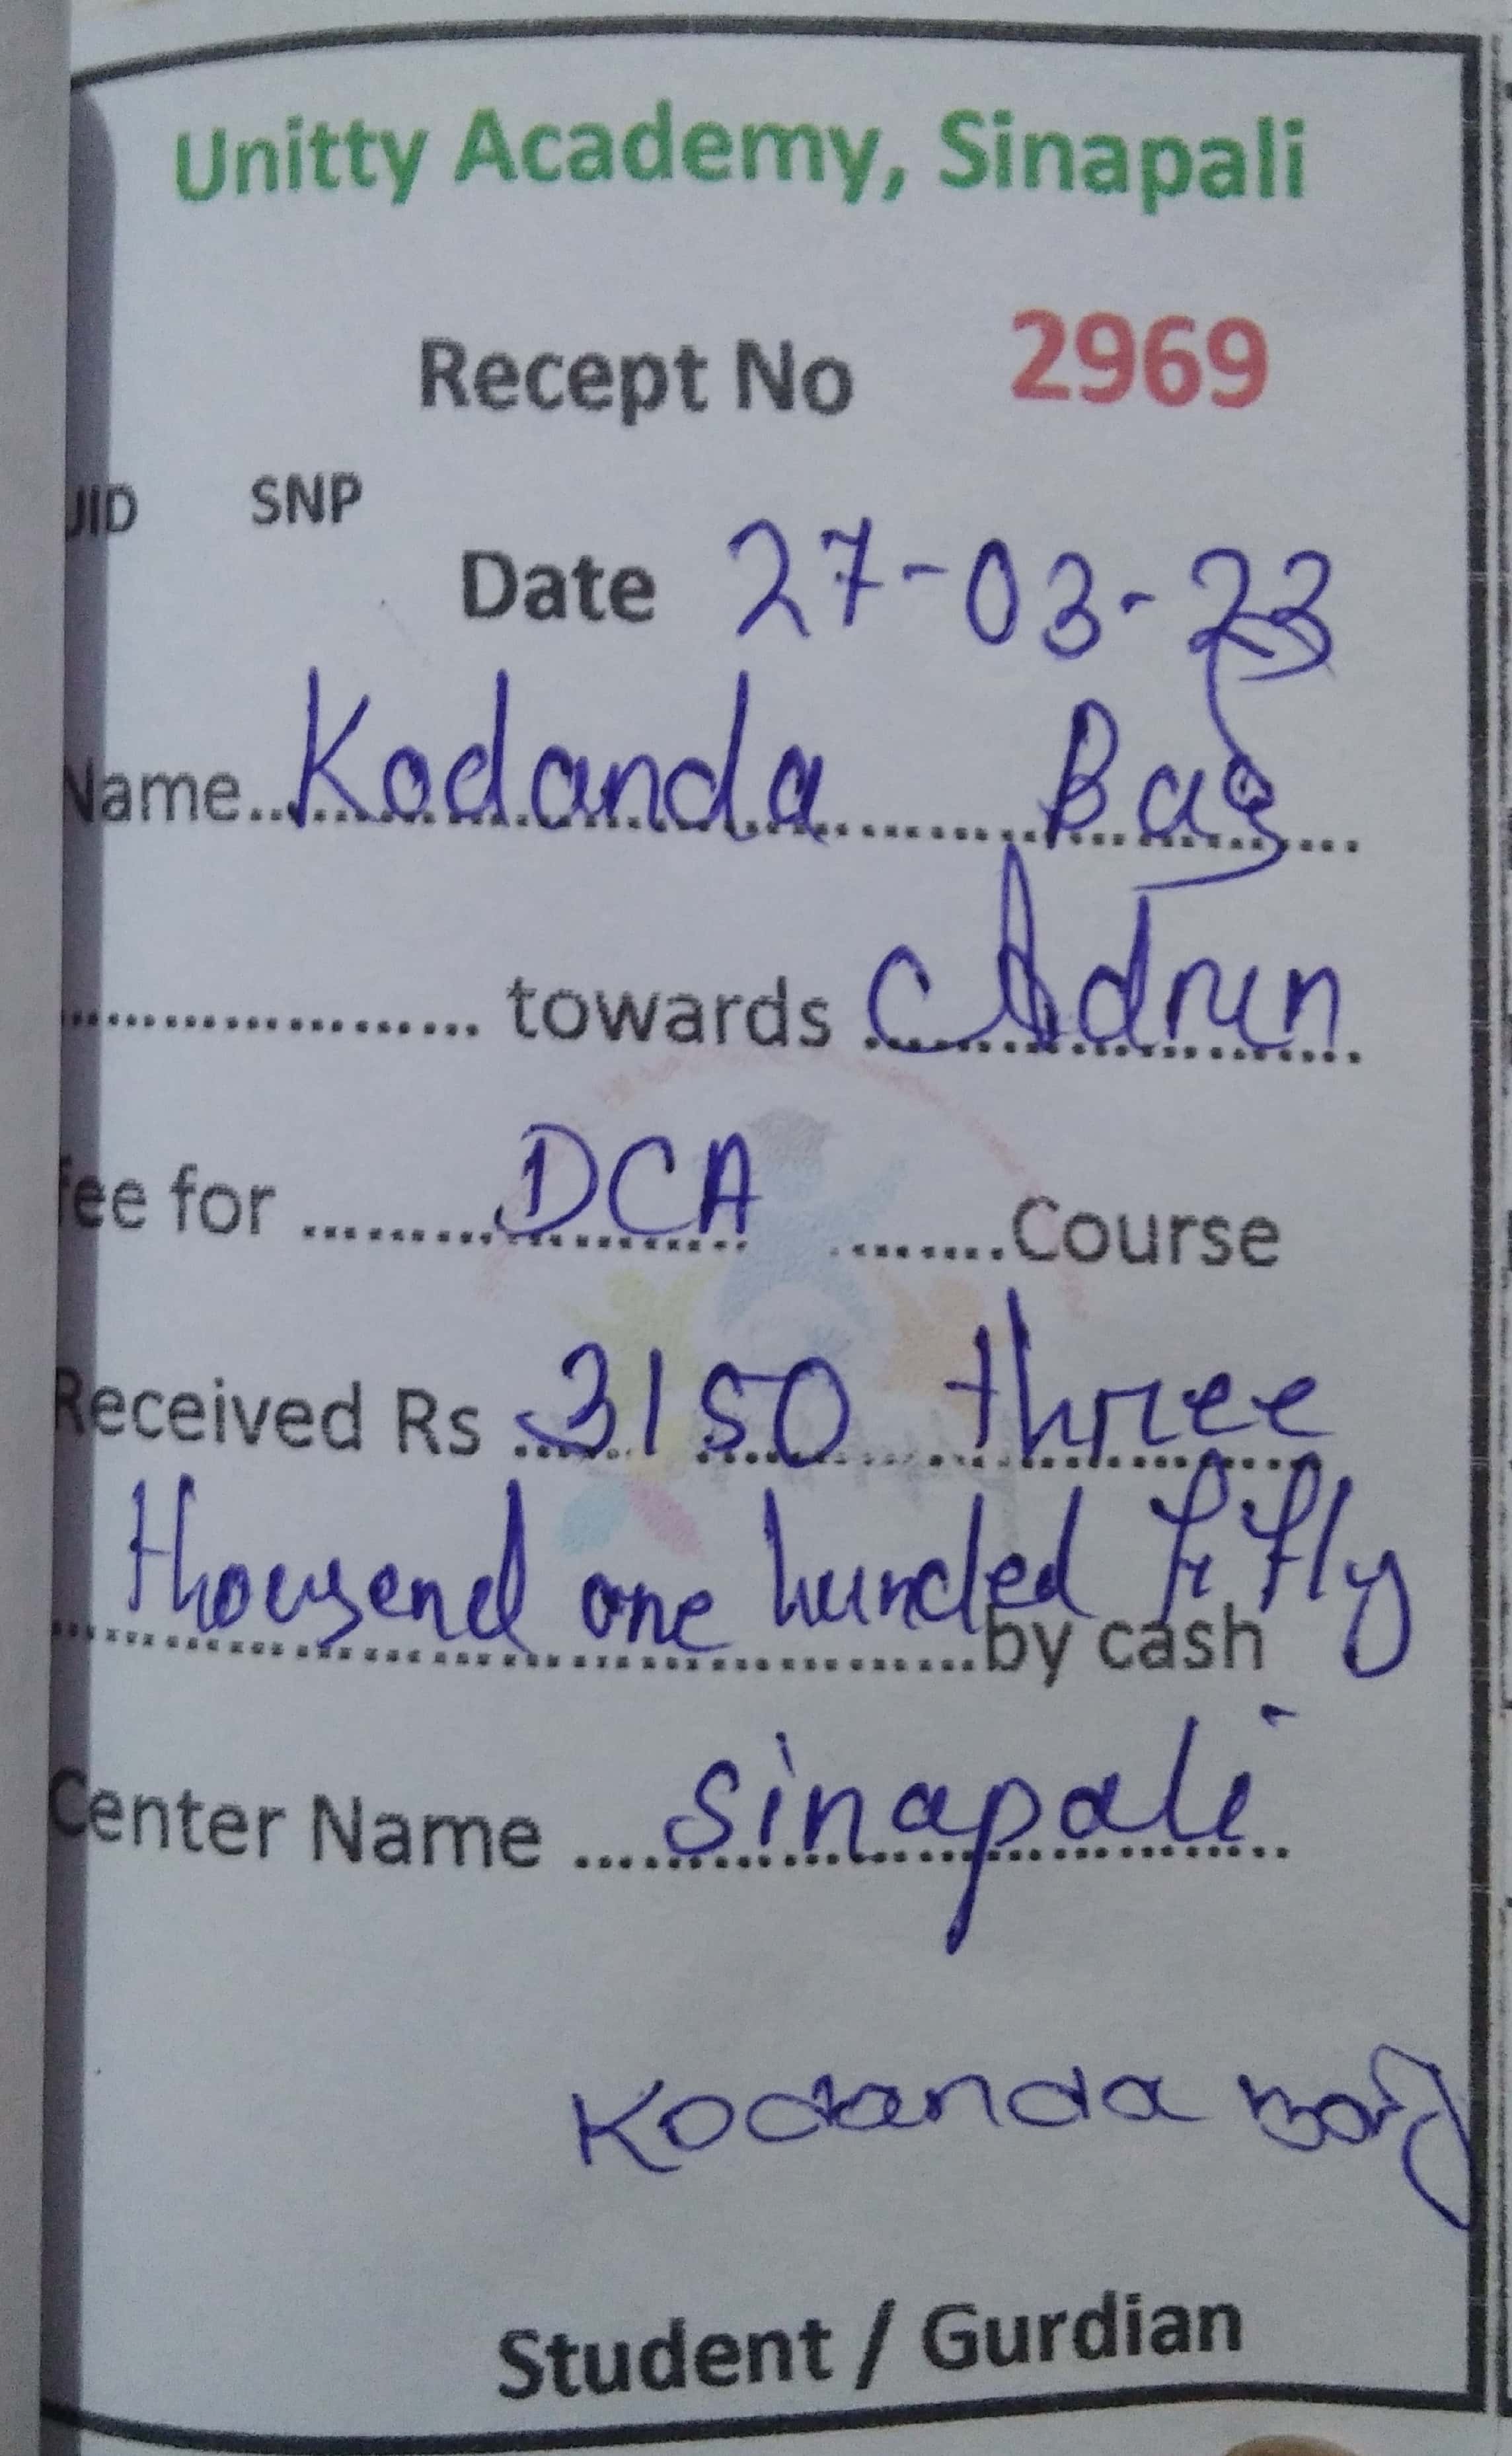 Unitty Academy, Sinapali
Recept No 2969
UID SNP
Date 27-03-23
Name Kodanda Bag
towards Admn
fee for DCA Course
Received Rs 3150 three
thousend one hunded fifty
by cash
Center Name Sinapali
Kodanda Bag
Student / Gurdian